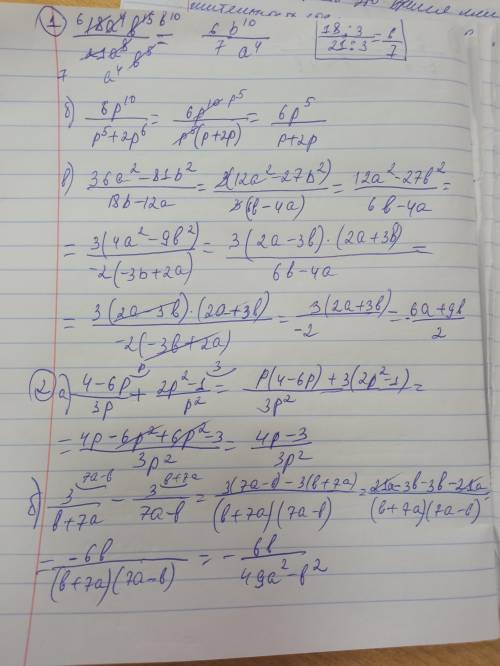 1 6 18a⁴ b¹⁵ b¹⁰ / 7 21a⁸ b⁵ a⁴ = 6 b¹⁰ / 7 a⁴ 18:3 / 21:3 = 6/7
б) 6p¹⁰ / p⁵+2p⁶ = 6p¹⁰ p⁵ / p⁵(p+2p) = 6p⁵ / p+2p
в) 36a²-81b² / 18b-12a = 3(12a²-27b²) / 3(6b-4a) = 12a²-27b² / 6b-4a =
= 3(4a²-9b²) / -2(-3b+2a) = 3(2a-3b)·(2a+3b) / 6b-4a =
= 3(2a-3b)·(2a+3b) / -2(-3b+2a) = 3(2a+3b) / -2 = -6a+9b / 2
2 а) 4-6p / 3p p + 2p²-1 / p² 3 = p(4-6p)+3(2p²-1) / 3p² =
= 4p-6p²+6p²-3 / 3p² = 4p-3 / 3p²
б) 3 / b+7a 7a-b - 3 / 7a-b b+7a = 3(7a-b)-3(b+7a) / (b+7a)(7a-b) = 21a-3b-3b-21a / (b+7a)(7a-b) =
= -6b / (b+7a)(7a-b) = - 6b / 49a²-b²